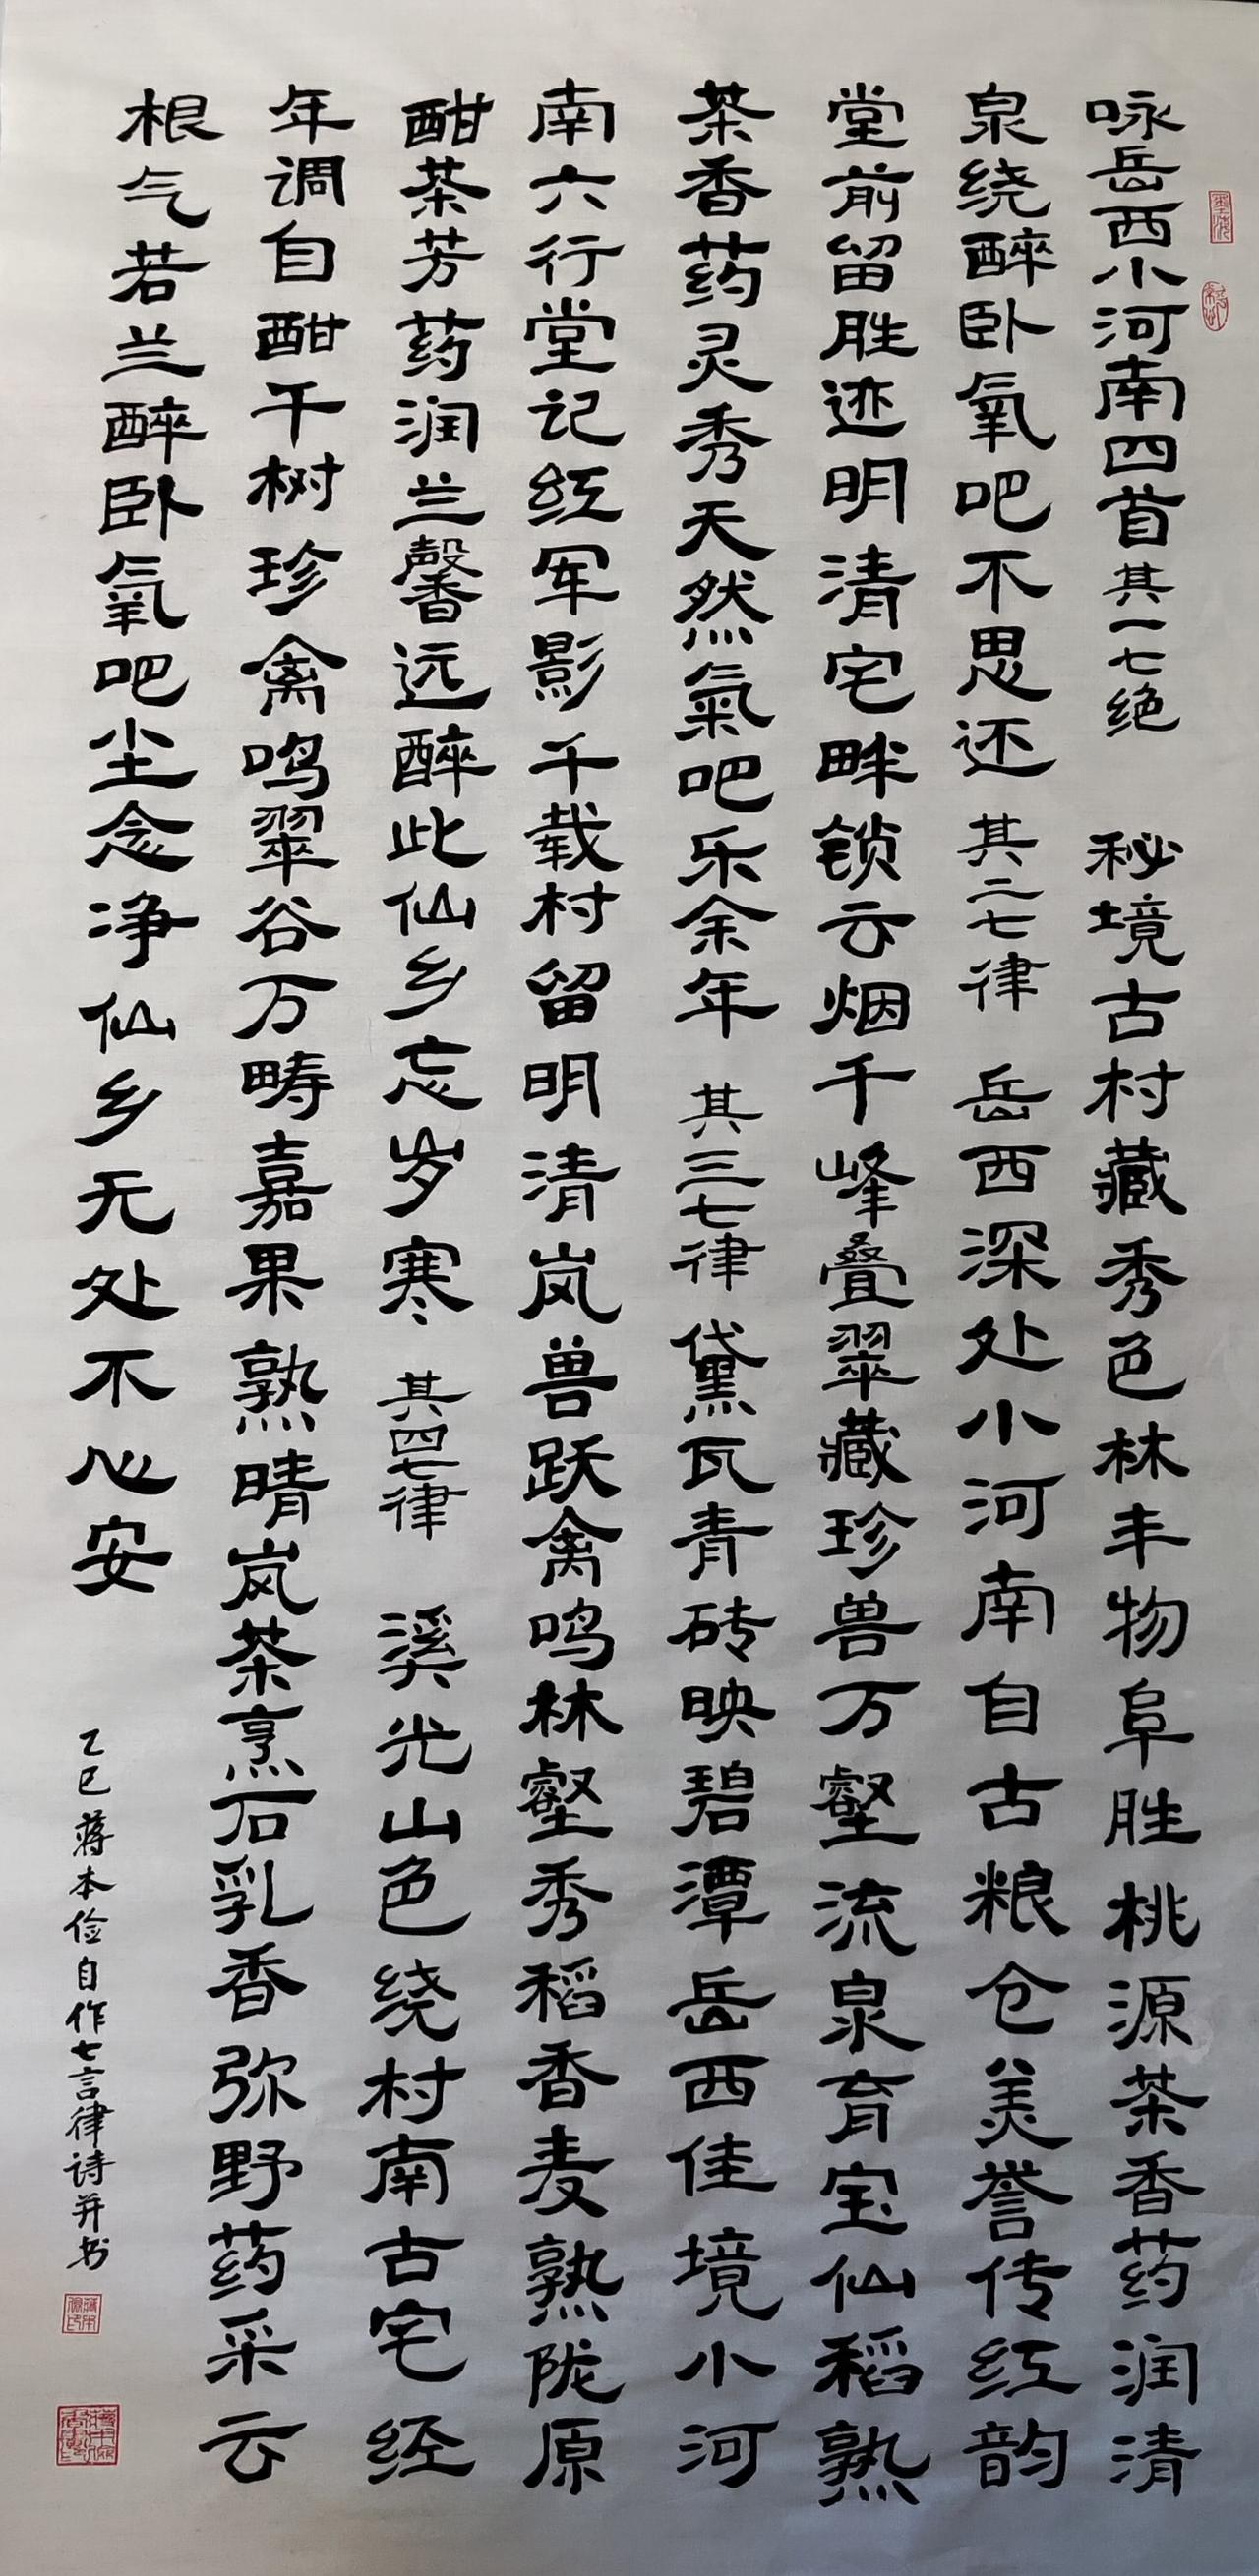 咏岳西小河南四首 其一七绝 秘境古村藏秀色林丰物阜胜桃源茶香药润清
泉绕醉卧氧吧不思还 其二七律 岳西深处小河南自古粮仓美誉传红韵
堂前留胜迹明清宅畔锁云烟千峰叠翠藏珍兽万壑流泉育宝仙稻熟
茶香药灵秀天然氣吧乐余年 其三七律 黛瓦青砖映碧潭岳西佳境小河
南六行堂记红军影千载村留明清岚兽跃禽鸣林壑秀稻香麦熟陇原
酣茶芳药润兰馨远醉此仙乡忘岁寒 其四七律 溪光山色绕村南古宅经
年调自酣千树珍禽鸣翠谷万畴嘉果熟晴岚茶烹石乳香弥野药采云
根气若兰醉卧氧吧尘念净仙乡无处不心安
乙巳蒋本俭自作七言律诗并书